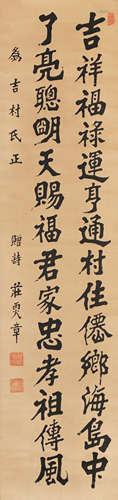 吉祥福祿運亨通村住僊鄉海島中
了亮聰明天賜福君家忠孝祖傳風
為吉村氏正
贈詩 莊霁章